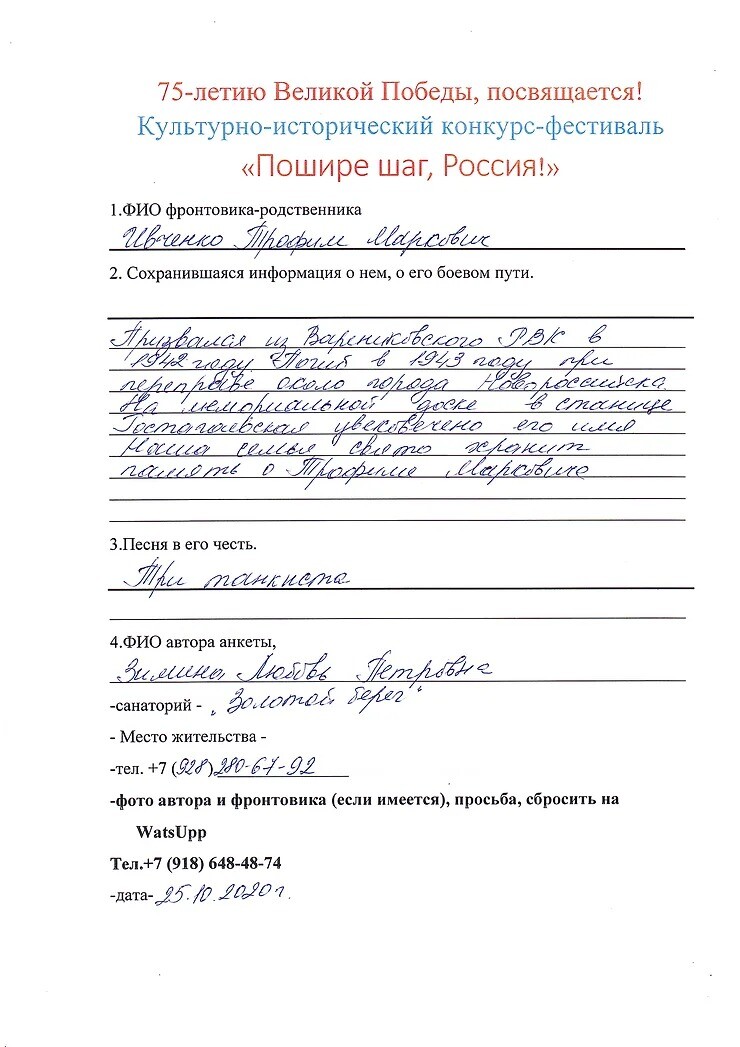 75-летию Великой Победы, посвящается!
Культурно-исторический конкурс-фестиваль
«Пошире шаг, Россия!»
1.ФИО фронтовика-родственника
Ивченко Трофим Маркович
2. Сохранившаяся информация о нем, о его боевом пути.
Призвался из Варениковского РВК в
1942 году Погиб в 1943 году при
переправе около города Новороссийска.
На мемориальной доске в станице
Гостагаевская увековечено его имя
Наша семья свято хранит
память о Трофиме Марковиче
3.Песня в его честь.
Три танкиста
4.ФИО автора анкеты,
Зимина Любовь Петровна
-санаторий - „Золотой берег"
- Место жительства -
-тел. +7 (928) 280-67-92
-фото автора и фронтовика (если имеется), просьба, сбросить на
WatsUpp
Тел.+7 (918) 648-48-74
-дата- 25.10.2020г.